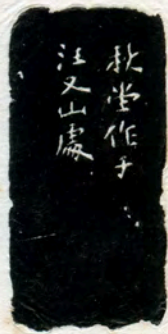 秋堂作于
汪又山處